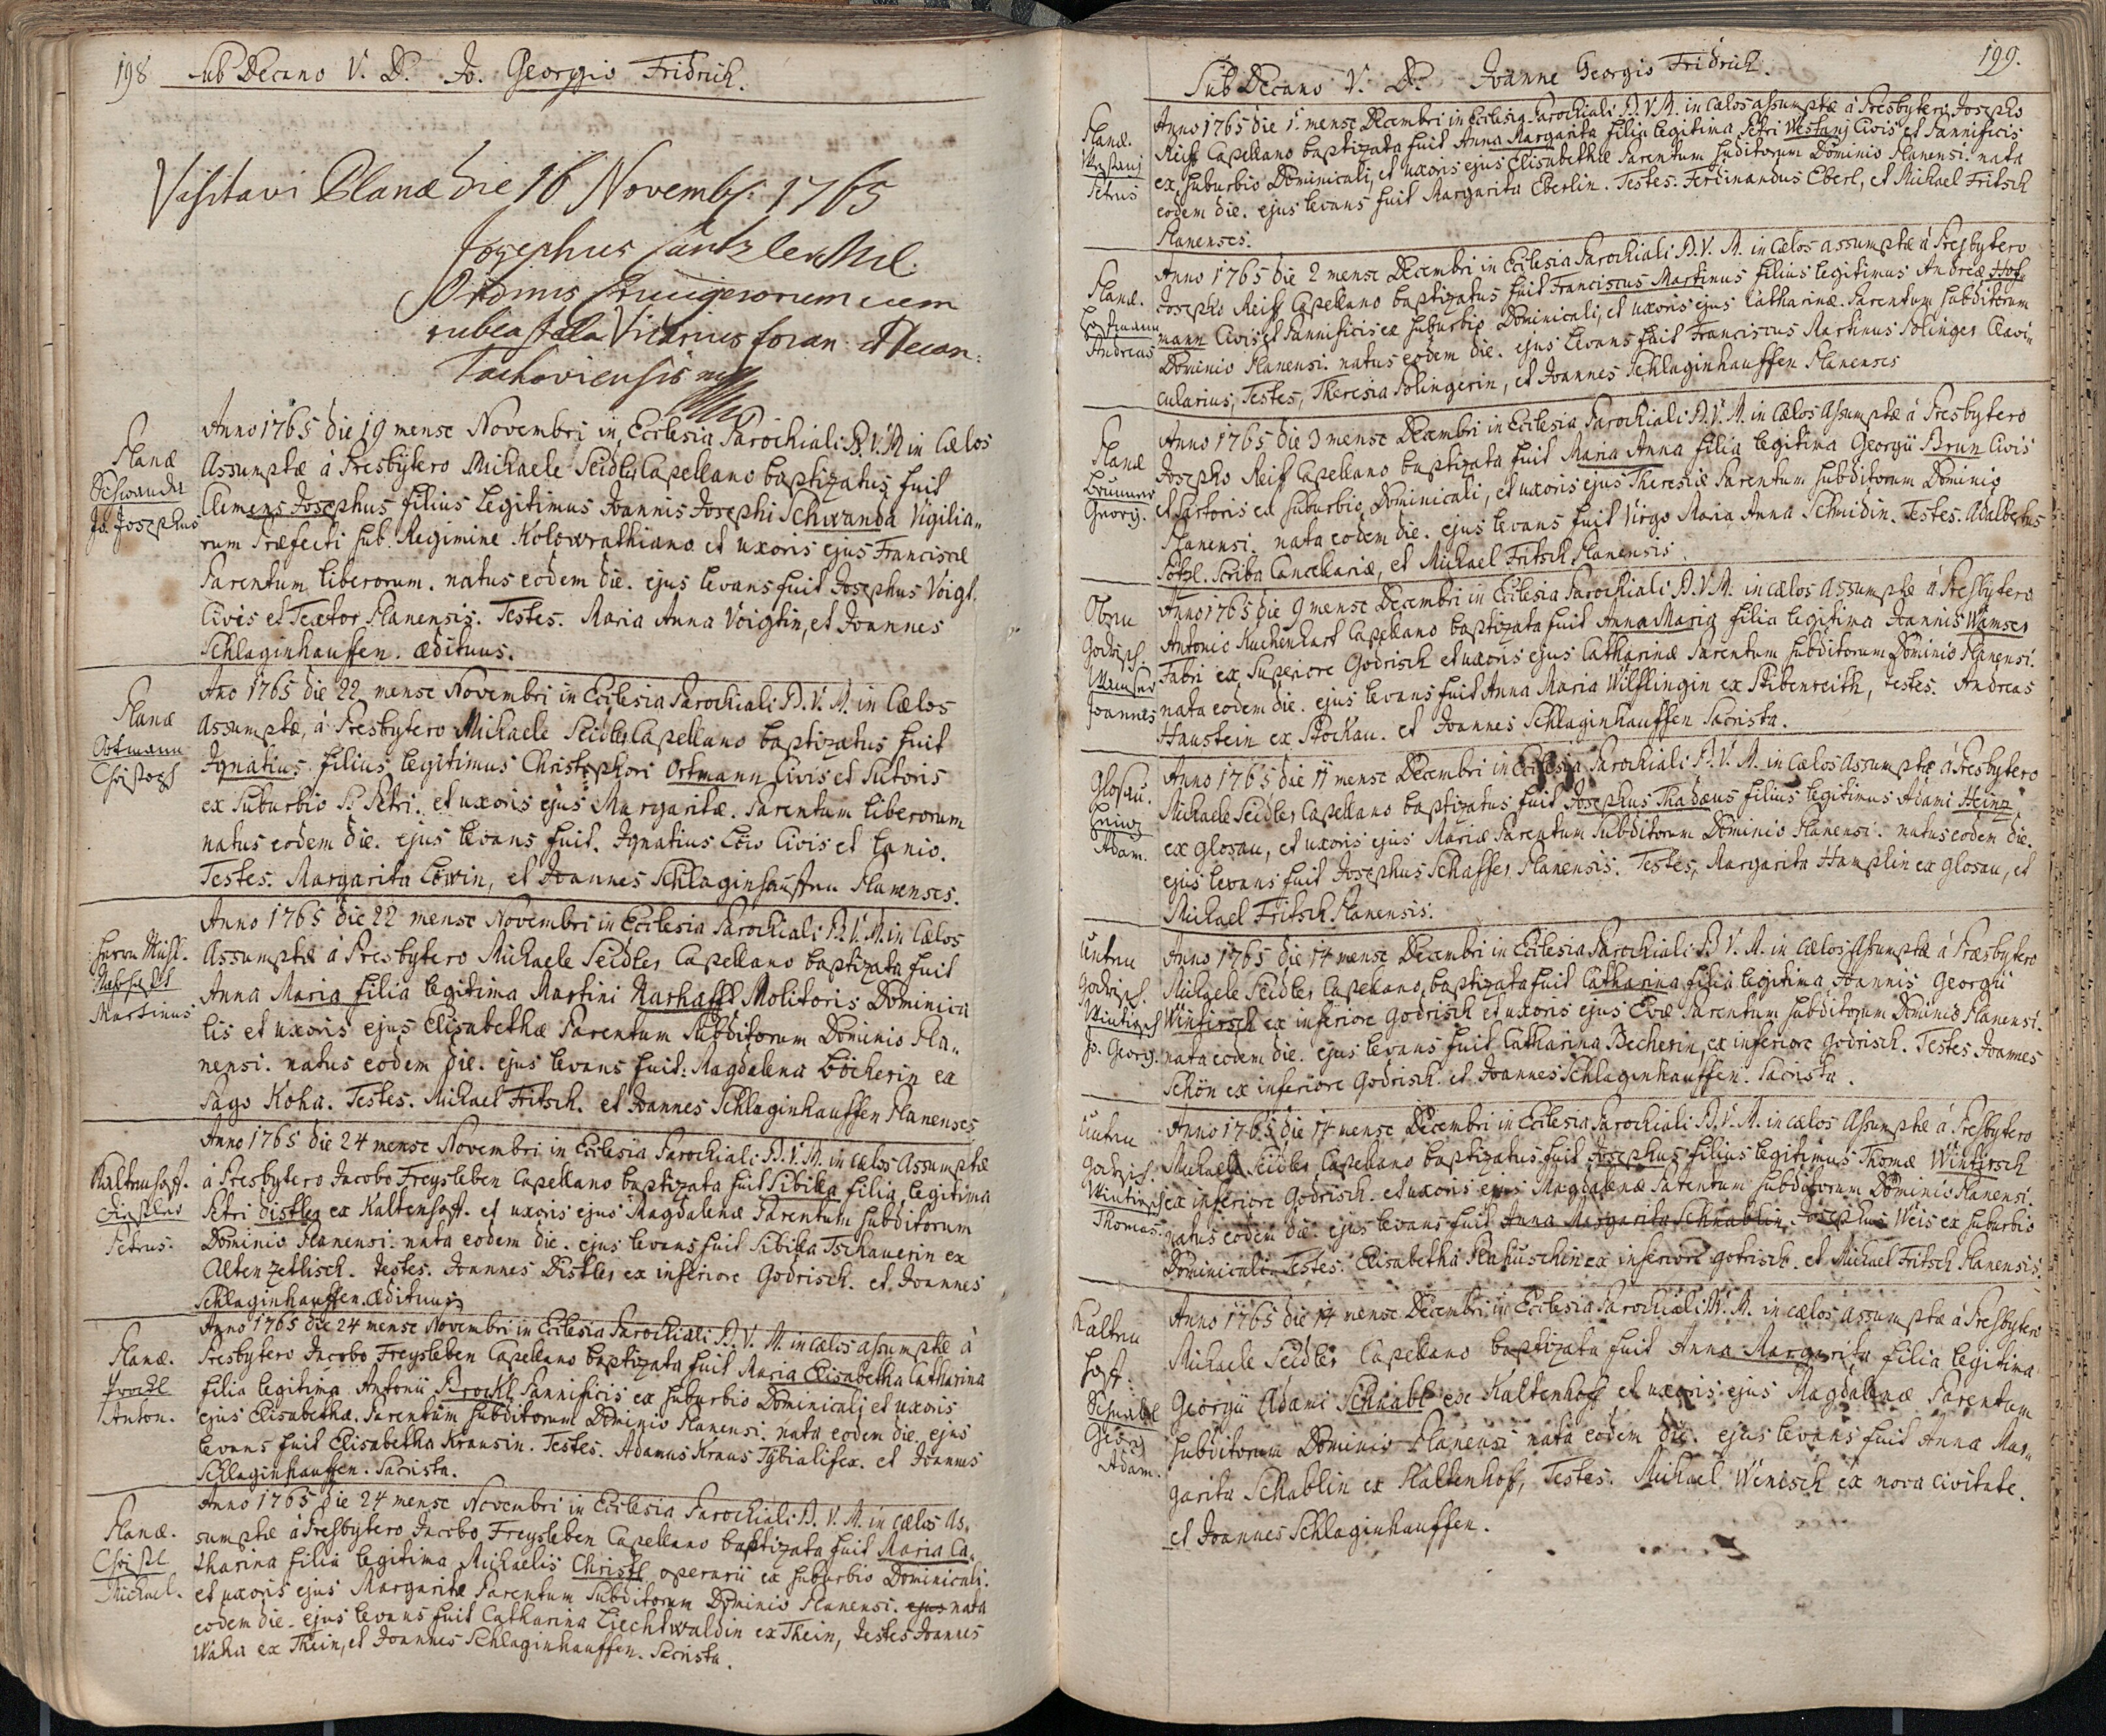 198 Sub Decano V. D. Jo. Georgio Fridrich.
Visitavi Planæ die 16 Novemb: 1765
Josephus
Ordinis Crucigerorum cum
rubea stella Vicarius foran: et Decan:
Tachoviensis mp
Planæ
Schwanda
Jo. Josephus
Anno 1765 die 19 mense Novembri in Ecclesia Parochiali B. V. M in Cælos
Assumptæ á Presbytero Michaele Seidler Capellano baptizatus fuit
Clemens Josephus filius legitimus Joannis Josephi Schwanda Vigilia„
rum Præfecti sub Regimine Kolowrathiano et uxoris ejus Franciscæ
Parentum liberorum. natus eodem die. ejus levans fuit Josephus Voigt.
Civis et Textor Planensis. Testes. Maria Anna Voigtin, et Joannes
Schlaginhauffen. ædituus.
Planæ
Ortmann
Christoph
Ano 1765 die 22 mense Novembri in Ecclesia Parochiali B. V. M. in Cælos
Assumptæ, á Presbytero Michaele Seidler Capellano baptizatus fuit
Ignatius filius legitimus Christophori Ortmann Civis et Sutoris
ex Suburbio S. Petri. et uxoris ejus Margaritæ. Parentum liberorum
natus eodem die. ejus levans fuit. Ignatius Löw Civis et Lanio.
Testes. Margarita Löwin, et Joannes Schlaginhauffen Planenses.
Herrn Mühl.
Martinus
Anno 1765 die 22 mense Novembri in Ecclesia Parochiali B. V. M. in Cælos
Assumptæ á Presbytero Michaele Seidler Capellano baptizata fuit
Anna Maria filia legitima Martini Narhafft Molitoris Dominica
lis et uxoris ejus Elisabethæ Parentum Subditorum Dominio Pla„
nensi. natus eodem die. ejus levans fuit: Magdalena Böcherin ex
Pago Koha. Testes. Michael Fritsch. et Joannes Schlaginhauffen Planenses
Kaltenhoff.
Distler
Petrus.
Anno 1765 die 24 mense Novembri in Ecclesia Parochiali B. V. M. in cælos Assumptæ
á Presbytero Jacobo Freysleben Capellano baptizata fuit Sibilla filia legitima
Petri Distler ex Kaltenhoff. et uxoris ejus Magdalenæ Parentum subditorum
Dominio Planensi. nata eodem die. ejus levans fuit Sibilla Tschauerin ex
Alten Zetlisch. Testes. Joannes Distler ex inferiore Godrisch. et Joannes
Schlaginhauffen. ædituus
Planæ.
Prockl
Anton.
Anno 1765 die 24 mense Novembri in Ecclesia Parochiali B. V. M. in cælos assumptæ á
Presbytero Jacobo Freysleben Capellano baptizata fuit Maria Elisabetha Catharina
filia legitima Antonii Prockl Pannificis ex suburbio Dominicali et uxoris
ejus Elisabethæ. Parentum subditorum Dominio Planensi. nata eodem die. ejus
levans fuit Elisabetha Krausin. Testes. Adamus Kraus Tybialifex. et Joannes
Schlaginhauffen. Sacrista.
Planæ.
Christl
Michael.
Anno 1765 die 24 mense Novembri in Ecclesia Parochiali B. V. M. in cælos As„
sumptæ á Presbytero Jacobo Freysleben Capellano baptizata fuit Maria Ca„
tharina filia legitima Michaelis Christl operarii ex suburbio Dominicali.
et uxoris ejus Margaritæ Parentum Subditorum Dominio Planensi. ejus nata
eodem die. ejus levans fuit Catharina Liechtwaldin ex Thein, Testes Joannes
Waha ex Thein, et Joannes Schlaginhauffen. Sacrista.
Sub Decano V. D. Joanne Georgio Fridrich. 199.
Planæ.
Westani
Petrus
Anno 1765 die 1. mense Decembri in Ecclesia Parochiali B. V. M. in cælos assumptæ á Presbytero Josepho
Reiff Capellano baptizata fuit Anna Margarita filia legitima Petri Westanj Civis et Pannificis
ex suburbio Dominicali, et uxoris ejus Elisabethæ Parentum subditorum Dominio Planensi. nata
eodem die. ejus levans fuit Margarita Eberlin. Testes. Ferdinandus Eberl, et Michael Fritsch
Planenses.
Planæ.
Hofmann
Andreas
Anno 1765 die 2 mense Decembri in Ecclesia Parochiali B. V. M. in cælos assumptæ á Presbytero
Josepho Reiff Capellano baptizatus fuit Franciscus Martinus filius legitimus Andreæ Hof„
mann Civis et Pannificis ex suburbio Dominicali, et uxoris ejus Catharinæ. Parentum subditorum
Dominio Planensi. natus eodem die. ejus levans fuit Franciscus Martinus Polinger Clavi„
cularius, Testes, Theresia Polingerin, et Joannes Schlaginhauffen Planenses
Planæ
Brunner
Georg.
Anno 1765 die 3 mense Decembri in Ecclesia Parochiali B. V. M. in cælos Assumptæ á Presbytero
Josepho Reiff Capellano baptizata fuit Maria Anna filia legitima Georgii Brun Civis
et Sartoris ex suburbio Dominicali, et uxoris ejus Theresiæ Parentum subditorum Dominio
Planensi. nata eodem die. ejus levans fuit Virgo Maria Anna Schmidin. Testes. Adalbertus
Pötzl. Scriba Cancelariæ, et Michael Fritsch Planensis.
Obern
Godrisch.
Wamser
Joannes
Anno 1765 die 9 mense Decembri in Ecclesia Parochiali B. V. M. in cælos Assumptæ á Presbytero
Antonio Kuchenhart Capellano baptizata fuit Anna Maria filia legitima Joannis Wamser
Fabri ex Superiore Godrisch et uxoris ejus Catharinæ Parentum subditorum Dominio Planensi.
nata eodem die. ejus levans fuit Anna Maria Wilflingin ex Stibenreith, testes. Andreas
Haustein ex Stockau. et Joannes Schlaginhauffen Sacrista.
Glosau.
Heinz
Adam.
Anno 1765 die 11 mense Decembri in Ecclesia Parochiali B. V. M. in cælos Assumptæ á Presbytero
Michaele Seidler Capellano baptizatus fuit Josephus Thadæus filius legitimus Adami Heinz
ex Glosau, et uxoris ejus Mariæ Parentum Subditorum Dominio Planensi. natus eodem die.
ejus levans fuit Josephus Schaffer Planensis. Testes, Margarita Hamplin ex Glosau, et
Michael Fritsch Planensis.
Untern
Godrisch.
Wintirsch
Jo. Georg.
Anno 1765 die 14 mense Decembri in Ecclesia Parochiali B V. M. in cælos Assumptæ á Præsbytero
Michaele Seidler Capellano, baptizata fuit Catharina filia legitima Joannis Georgii
Wintirsch ex inferiore Godrisch et uxoris ejus Evæ Parentum subditorum Dominio Planensi.
nata eodem die. ejus levans fuit Catharina Becherin, ex inferiore Godrisch. Testes Joannes
Schön ex inferiore Godrisch. et Joannes Schlaginhauffen. Sacrista.
Untern
Godrisch.
Wintirsch
Thomas.
Anno 1765 die 14 mense Decembri in Ecclesia Parochiali B. V. M. in cælos Assumptæ á Presbytero
Michaele Seidler Capellano baptizatus fuit Josephus filius legitimus Thomæ Wintirsch
ex inferiore Godrisch. et uxoris ejus Magdalenæ Parentum subditorum Dominio Planensi.
natus eodem die. ejus levans fuit Anna Margarita Schnablin, Josephus Weis ex suburbio
Dominicali. Testes. Elisabetha ex inferiore Godrisch. et Michael Fritsch Planensis.
Kalten
hoff.
Schnabl
Georg
Adam.
Anno 1765 die 14 mense Decembri in Ecclesia Parochiali B. V. M. in cælos Assumptæ á Presbytero
Michaele Seidler Capellano baptizata fuit Anna Margarita filia legitima
Georgii Adami Schnabl ex Kaltenhoff et uxoris ejus Magdalenæ Parentum
subditorum Dominio Planensi nata eodem die. ejus levans fuit Anna Mar„
garita Schablin ex Kaltenhoff, Testes. Michael Wenisch ex nova civitate.
et Joannes Schlaginhauffen.